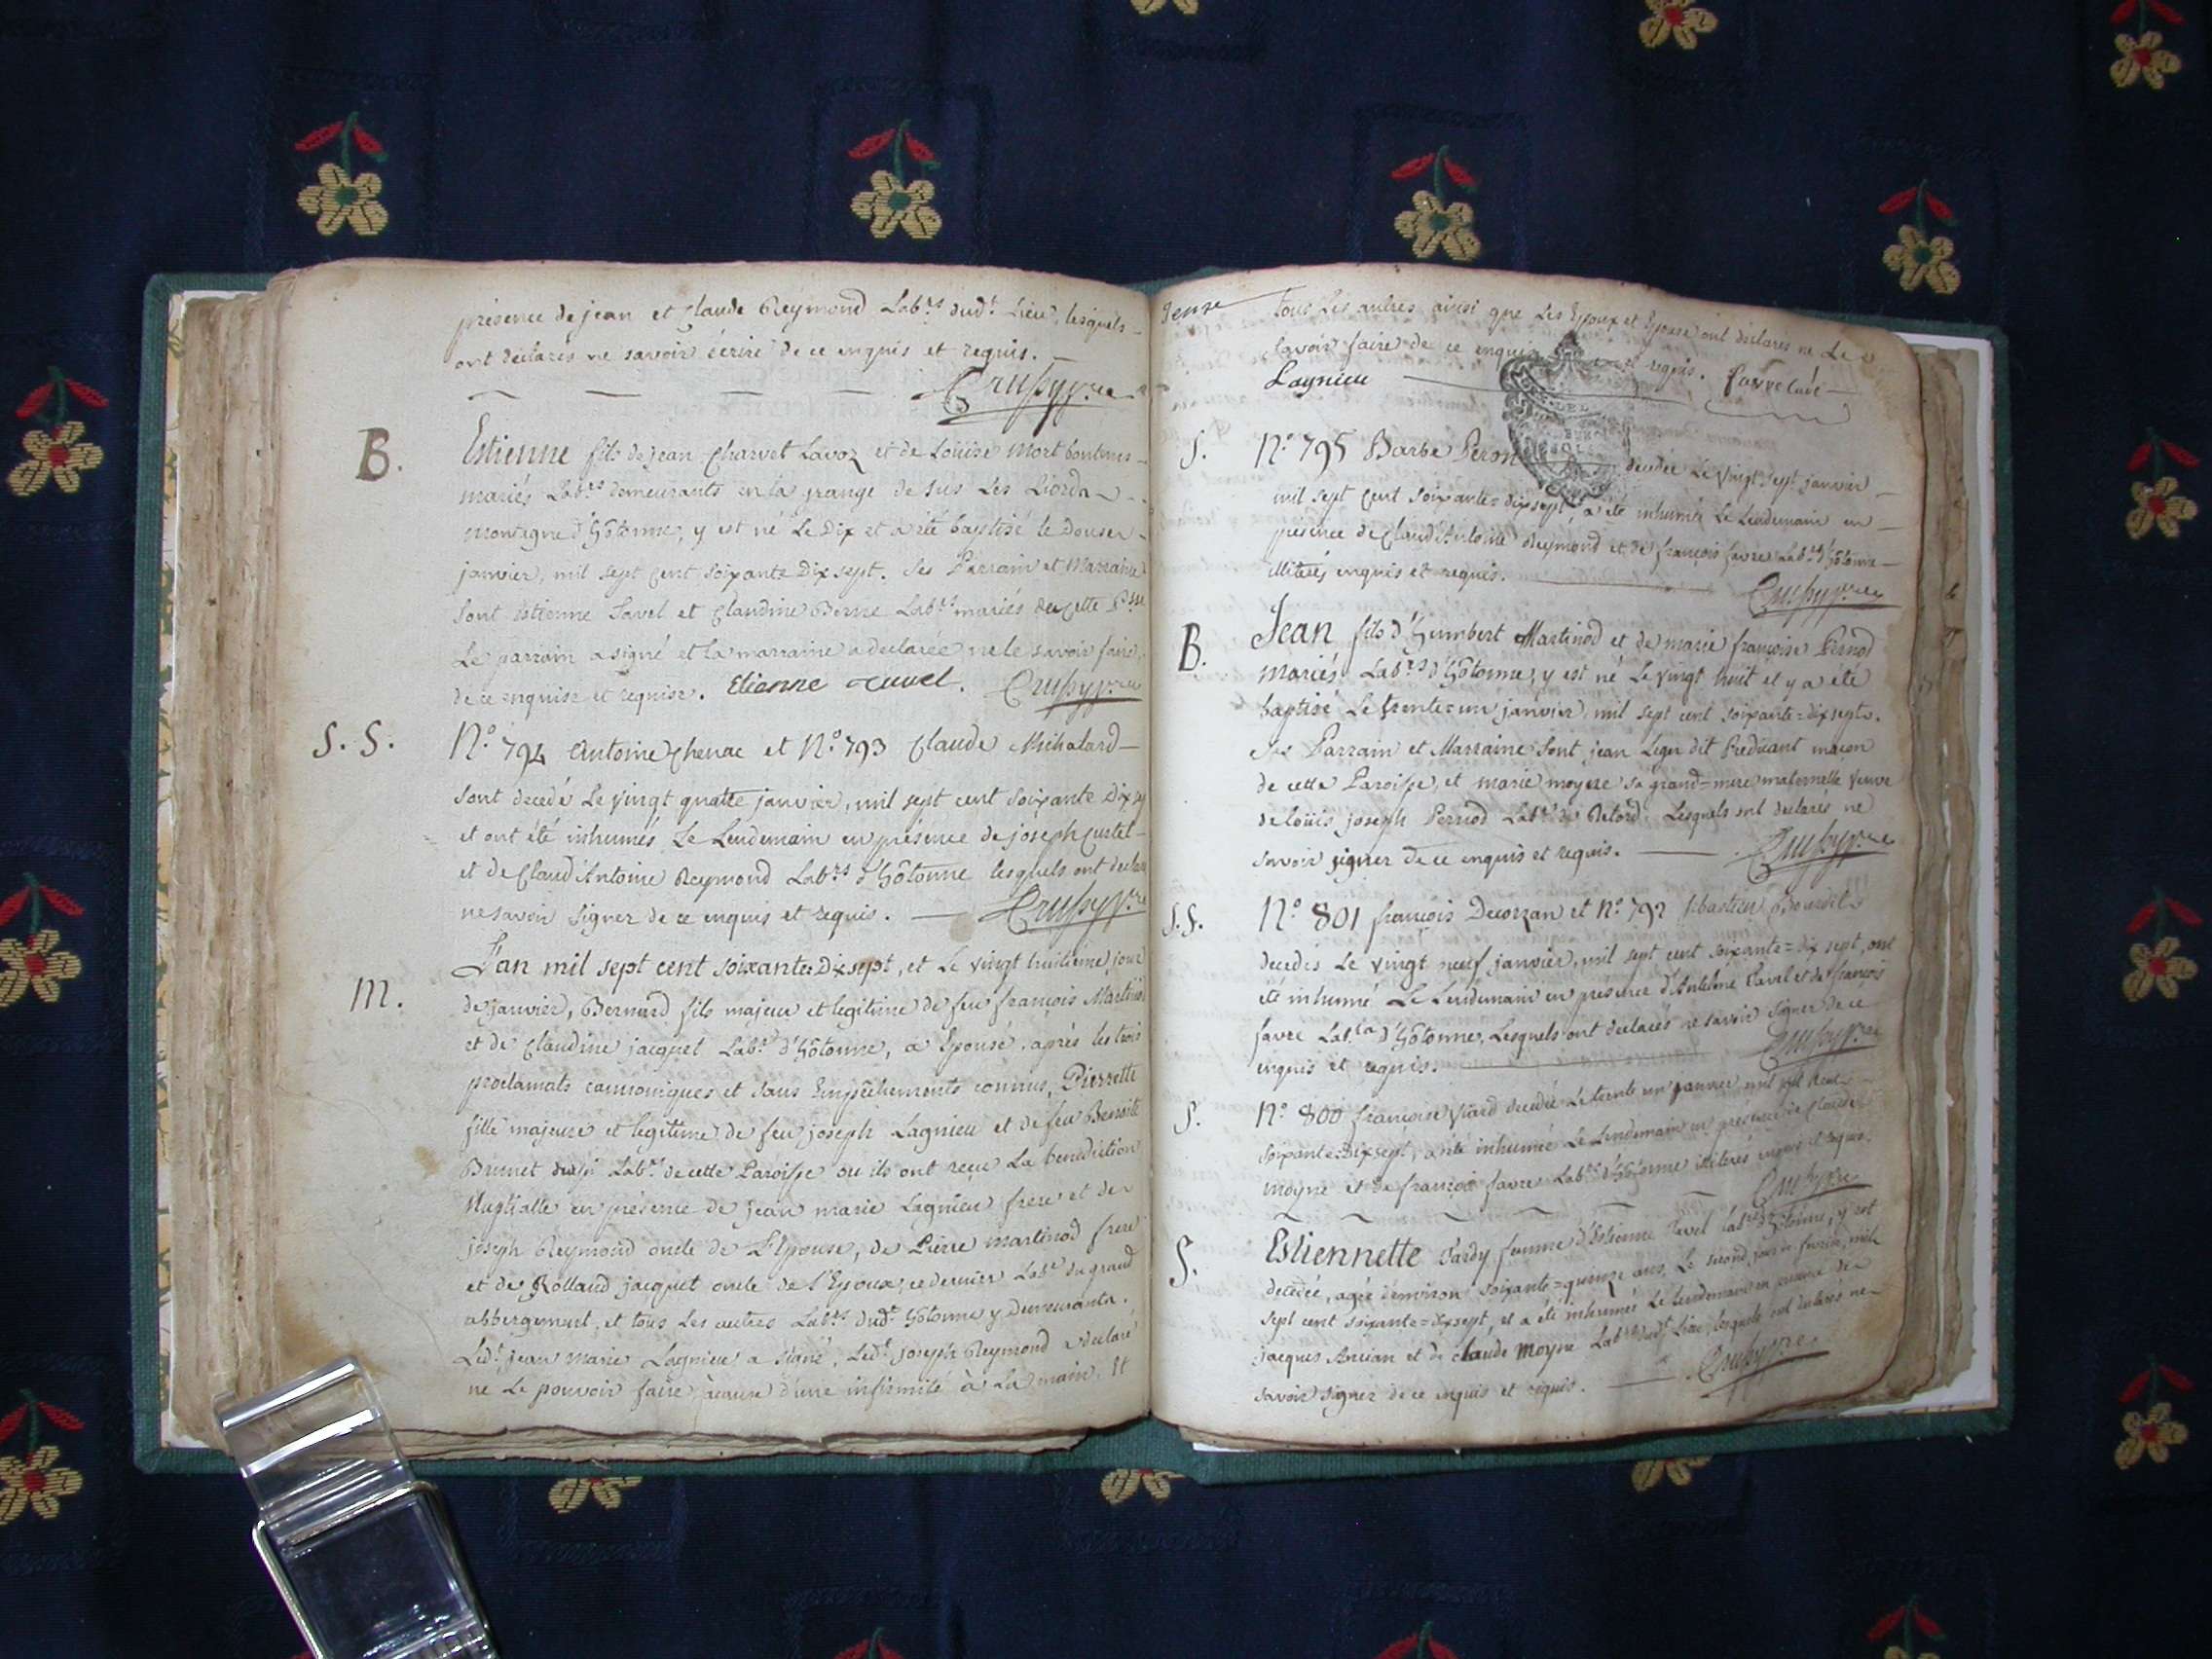 présence de jean et Claude Reymond Lab.rs dud.t Lieu, lesquels
ont déclarés ne savoir écrire de ce enquis et requis.
Crussy p.re
B.
Estienne fils de jean Charvet Lavoz et de Loüise Mort
mariés Lab.rs demeurants en la grange de sus Les
montagne d'hôtonne, y est né Le Dix et a été baptisé le Douse
janvier, mil sept cent soixante Dix sept. Ses Parrain et Marraine
sont estienne Savel et Claudine Berne Lab.rs mariés de cette P.sse
Le parrain a signé et la marraine a declarée ne le savoir faire,
de ce enquise et requise. Etienne Cuvel. Crussy p.re
S. S.
N.o 794 Antoine Chenac et N.o 793 Claude Michalard
sont decedé Le vingt quatte janvier, mil sept cent soixante Dix sep
et ont été inhumés Le Lendemain en présence de joseph Curtet
et de Claud'Antoine Reymond Lab.rs d'hôtonne lesquels ont declaré
ne savoir signer de ce enquis et requis. Crussy p.re
M.
L'an mil sept cent soixante=Dix sept, et Le vingt huitieme jour
de janvier, Bernard fils majeur et legitime de feu françois Martinod
et de Claudine jacquet Lab.rs d'hôtonne, a Epousé, après les trois
proclamats cannoniques et sans Empêchements connus, Pierrette
fille majeure et legitime de feu joseph Lagnieu et de feu Benoite
Brunet aussi Lab.rs de cette Paroisse ou ils ont reçu La benediction
Nuptialle en présence de jean marie Lagnieu frere et de
joseph Reymond oncle de L'Epouse, de Pierre martinod frere
et de Rolland jacquet oncle de l'Epoux, ce dernier Lab.r du grand
abbergement, et tous Les autres Lab.rs dud.t hôtonne y Demeurants.
Led.t jean marie Lagnieu a signé, Led.t joseph Reymond a declaré
ne Le pouvoir faire, àcause d'une infirmité à La main. Et
douze
tous Les autres ainsi que Les Epoux et Epouse ont déclarés ne Le
savoir faire de ce enquis et requis. Favre Curé
Lagnieu
S.
N.o 795 Barbe Peron decedée Le vingt-sept janvier
mil sept cent soixante=dix sept, a été inhumée Le Lendemain en
présence de Claud'Antoine Reymond et de françois favre Lab.rs d'hôtonne
illiterés enquis et requis. Crussy p.re
B.
Jean fils d'humbert Martinod et de marie françoise Pernod
mariés Lab.rs d'hôtonne, y est né Le vingt huit et y a été
baptisé Le trente=un janvier, mil sept cent soixante=dix sept.
Ses Parrain et Marraine sont jean Leger dit Predicant maçon
de cette Paroisse, et marie moyne sa grand=mere maternelle veuve
de loüis joseph Pernod Lab.r de Retord. Lesquels ont declarés ne
savoir signer de ce enquis et requis. Crussy p.re
S. S.
N.o 801 françois Decorzan et N.o 792 sebastien Bourdel
decedés Le vingt neuf janvier, mil sept cent soixante=dix sept, ont
été inhumé Le Lendemain en présence d'Antelme Cavel et de françois
favre Lab.rs d'hôtonne, Lesquels ont declarés ne savoir signer de ce
enquis et requis. Crussy p.re
S.
N.o 800 françoise decedée Le trente un janvier mil sept cent
soixante=Dix sept, a été inhumée Le Lendemain en présence de Claude
moyne et de françois favre Lab.rs d'hôtonne illiterés enquis et requis.
Crussy p.re
S.
Estiennette Tardy femme d'Estienne Cavel Lab.r d'hôtonne, y est
decedée, agée d'environ soixante=quinze ans, Le second jour de fevrier, mil
sept cent soixante=dix sept, et a été inhumée Le Lendemain en présence de
jacques Ancian et de claude Moyne Lab.rs dud.t Lieu, lesquels ont declarés ne
savoir signer de ce enquis et requis. Crussy p.re